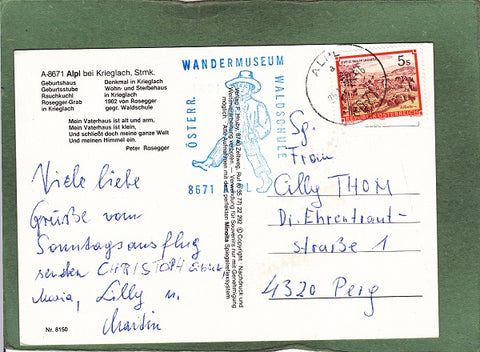 A-8671 Alpl bei Krieglach, Stmk.
Geburtshaus
Geburtsstube
Rauchkuchl
Rosegger-Grab
in Krieglach
Denkmal in Krieglach
Wohn- und Sterbehaus
in Krieglach
1902 von Rosegger
gegr. Waldschule
Mein Vaterhaus ist alt und arm,
Mein Vaterhaus ist klein,
Und schließt doch meine ganze Welt
Und meinen Himmel ein.
Peter Rosegger
Viele liebe
Grüße vom
Sonntagsausflug
senden CHRISTOPH
Maria, Lilly u.
Martin
Nr. 8150
WANDERMUSEUM
WALDSCHULE
ÖSTERR.
8671
ALPL
5s
REPUBLIK ÖSTERREICH
Sg.
Frau
Cilly THOM
Dr. Ehrentraut-
straße 1
4320 Perg